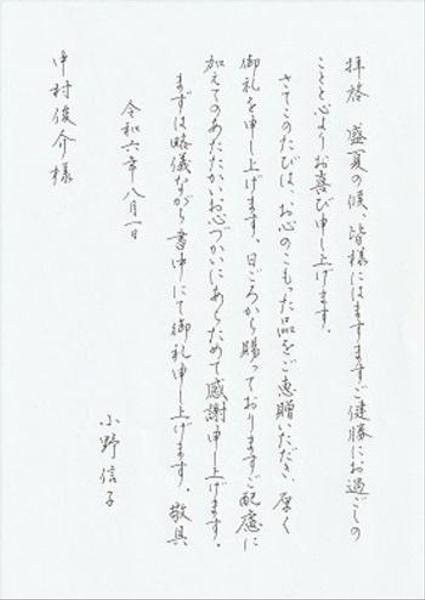 拝啓 盛夏の候、皆様にはますますご健勝にお過ごしの
ことと心よりお喜び申し上げます。
さてこのたびは、お心のこもった品をご恵贈いただき、厚く
御礼を申し上げます。日ごろから賜っておりますご配慮に
加えてのあたたかいお心づかいにあらためて感謝申し上げます。
まずは略儀ながら書中にて御礼申し上げます。 敬具
令和六年八月一日
小野信子
中村俊介様